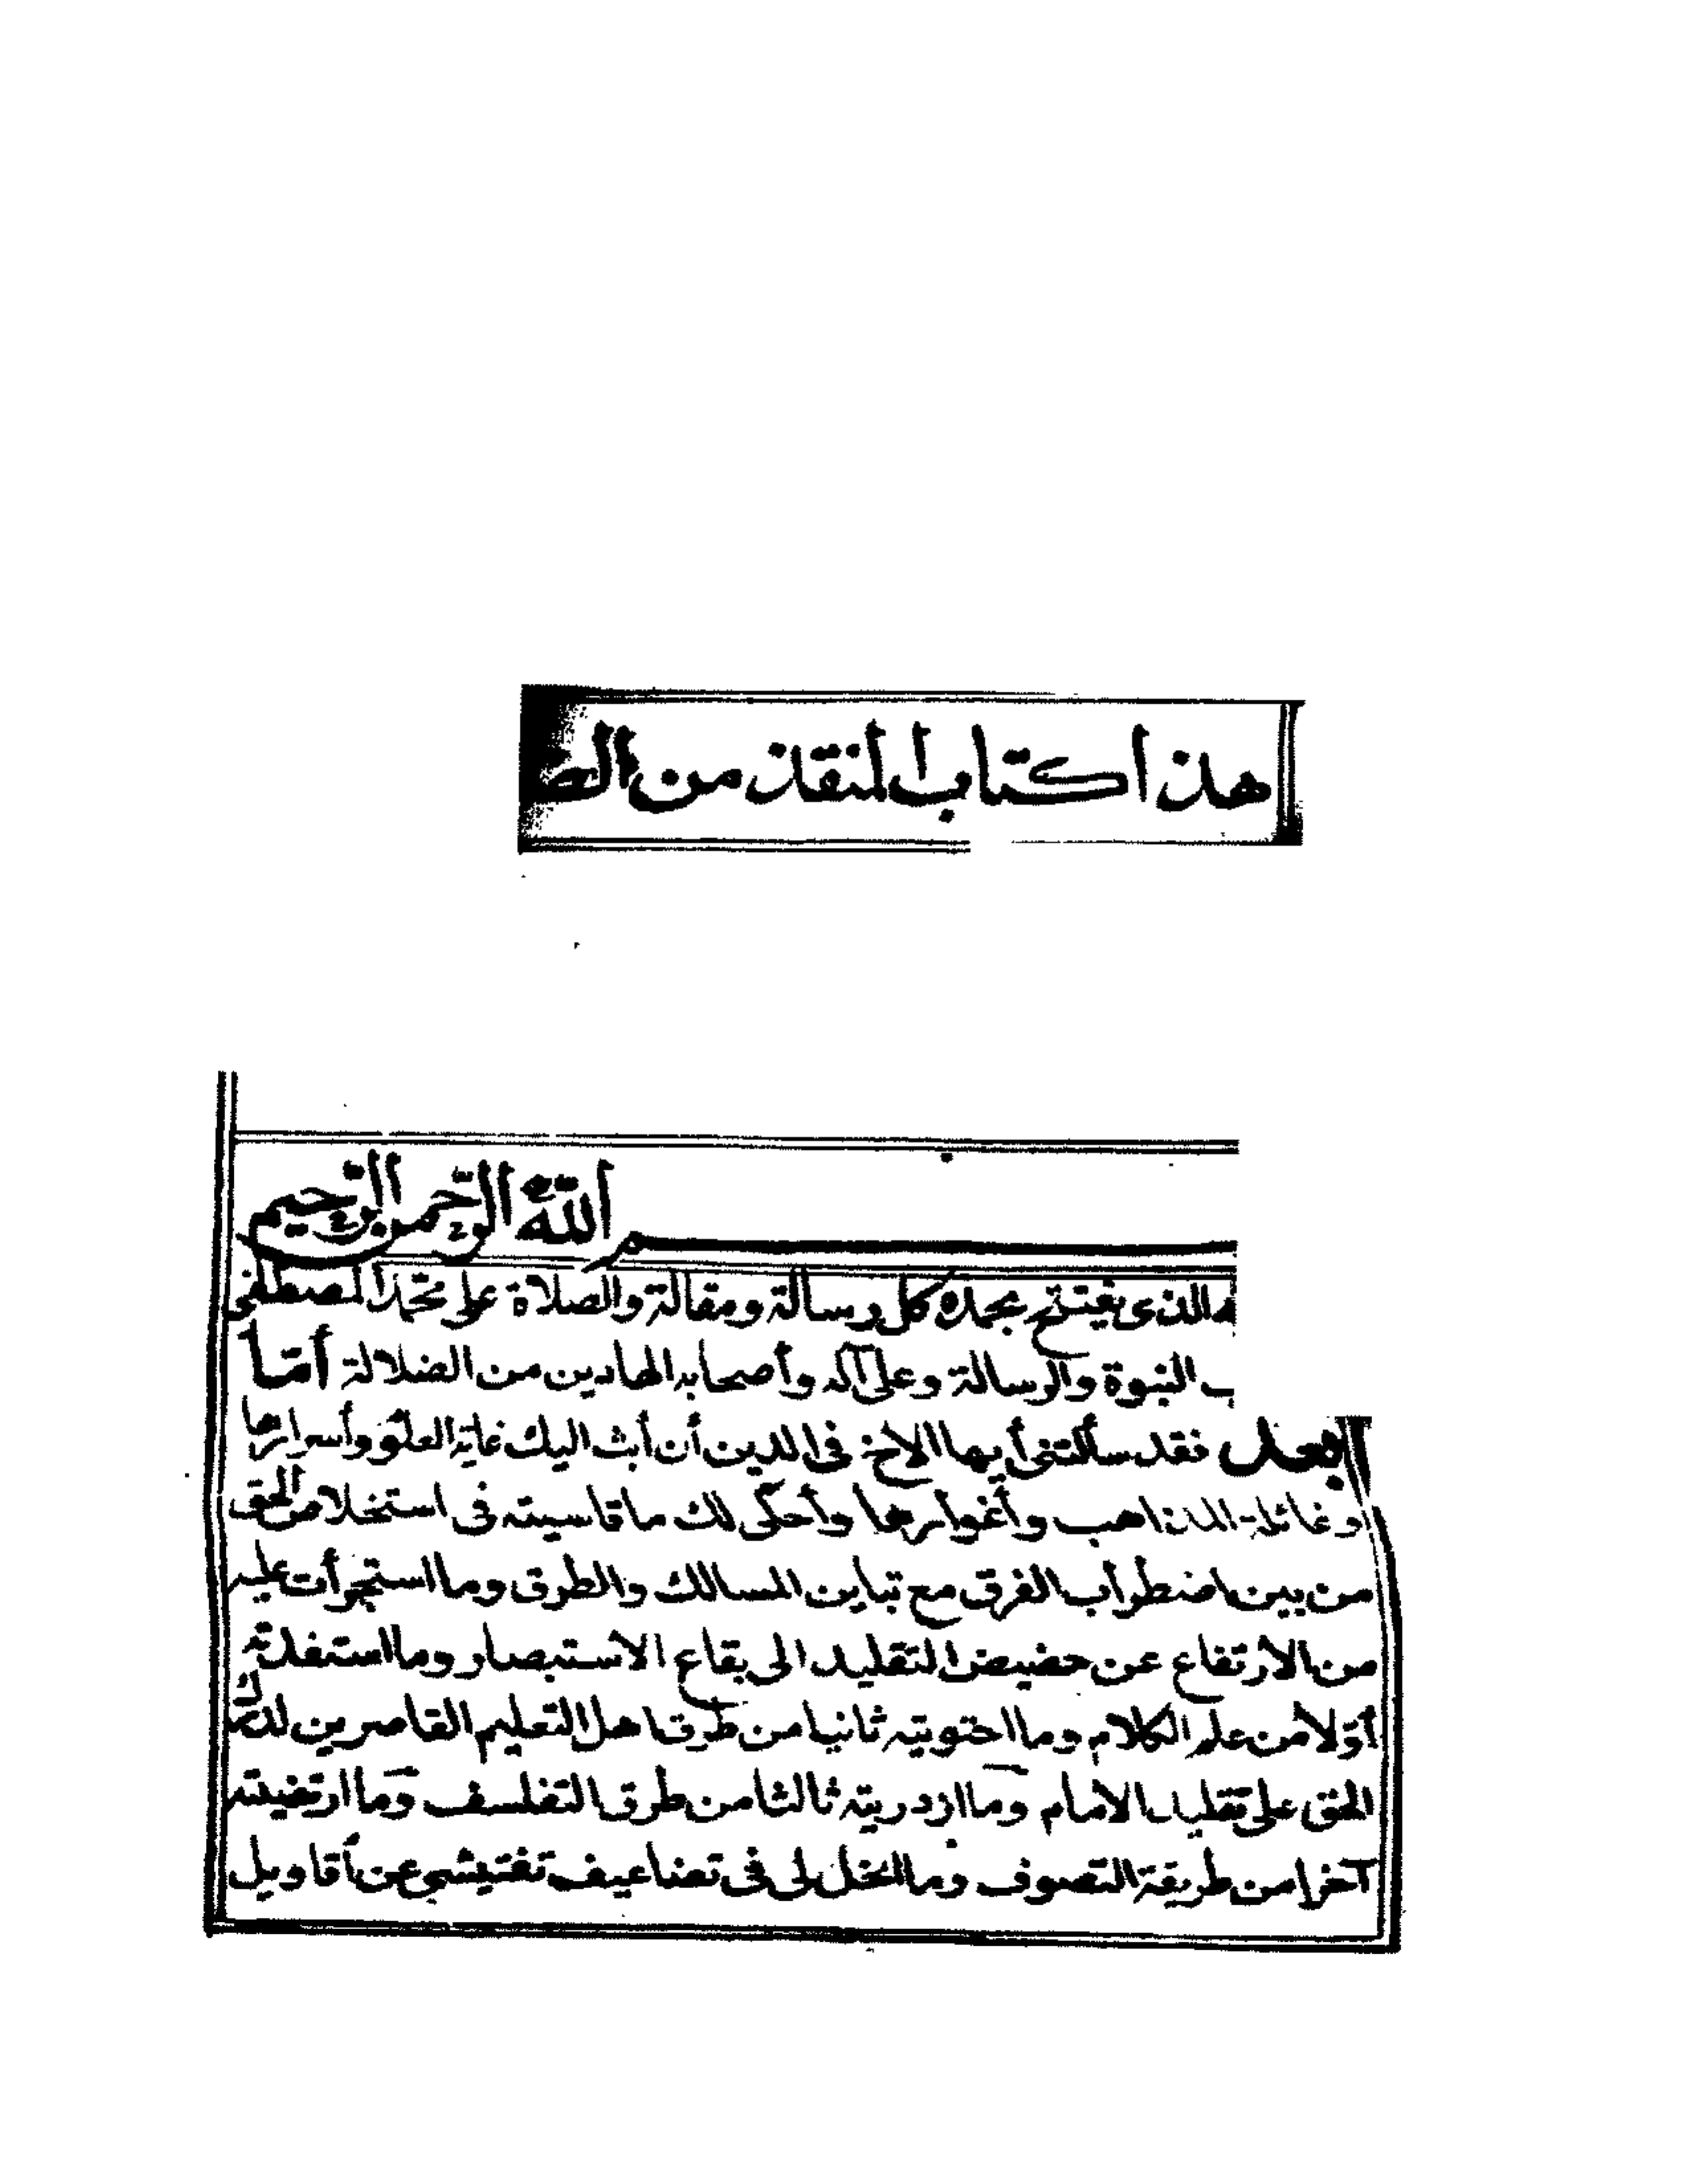 هذا كتاب المنقذ من الض
الله الرحمن الرحيم
الذى يفتتح بحمده كل رسالة ومقالة والصلاة على محمد المصطفى
النبوة والرسالة وعلى آله وأصحابه الهادين من الضلالة أما
بعد فقد سألتنى أيها الاخ فى الدين أن أبث اليك غاية العلوم وأسرارها
وغائلة المذاهب وأغوارها وأحكى لك ما قاسيته فى استخلاص الحق
من بين اضطراب الفرق مع تباين المسالك والطرق وما استجرأت عليه
من الارتفاع عن حضيض التقليد الى يفاع الاستبصار وما استفدته
أولا من علم الكلام وما احتويته ثانيا من طرق اهل التعليم القاصرين لدرك
الحق على تقليد الامام وما ازدريته ثالثا من طرق التفلسف وما ارتضيته
آخرا من طريقة التصوف وما انخل لى فى تضاعيف تفتيشى عن أقاويل